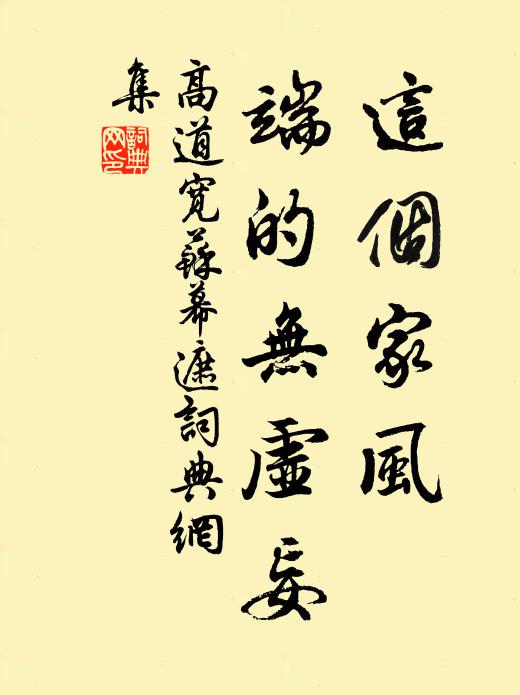 這個家風
端的無虛妄
高道寬蘇幕遮詞典網
集
詞典
网印